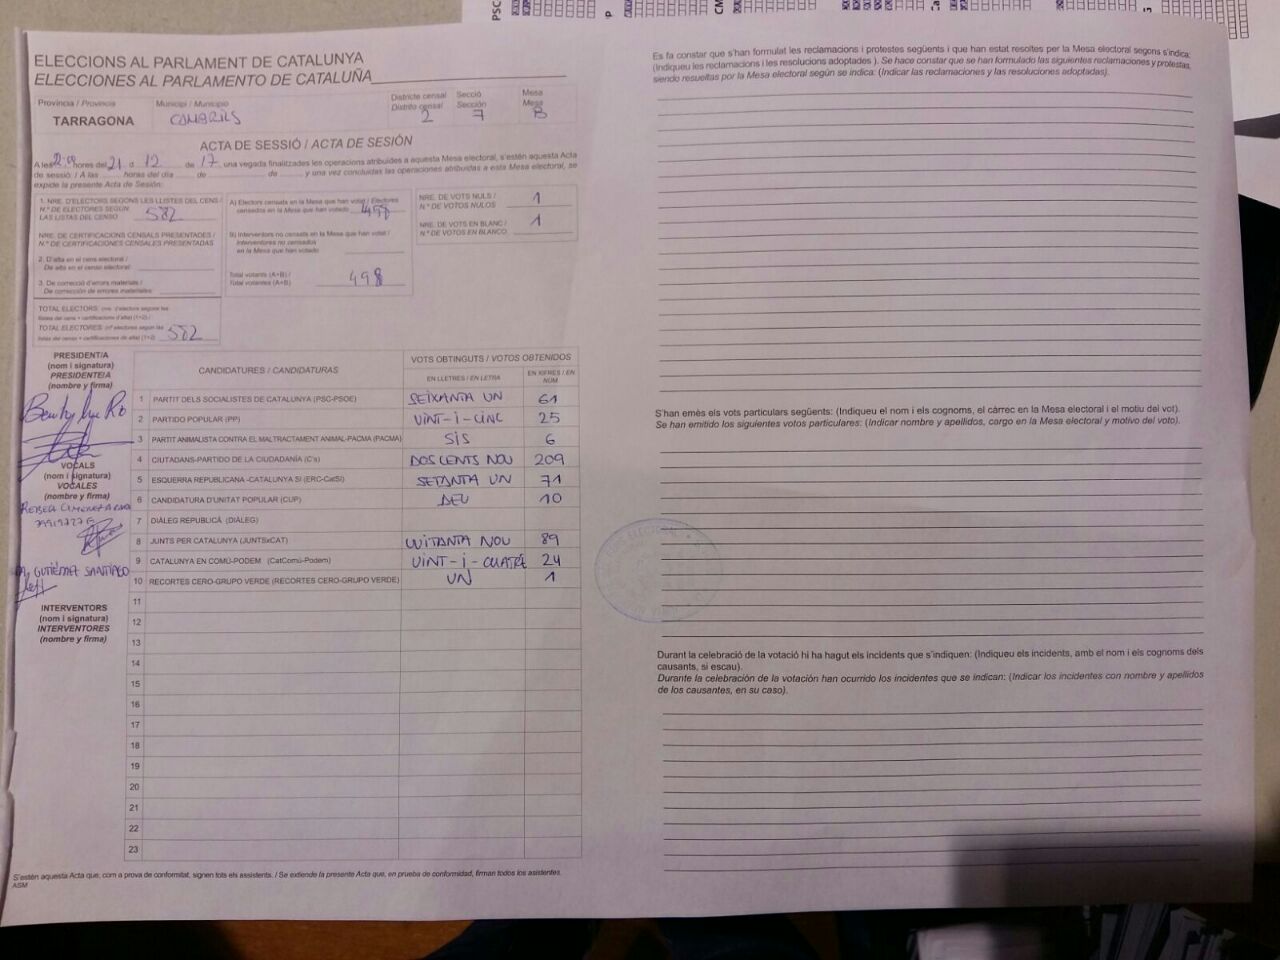 ELECCIONS AL PARLAMENT DE CATALUNYA
ELECCIONES AL PARLAMENTO DE CATALUÑA
Província / Provincia
Municipi / Municipio
Districte censal
Distrito censal
Secció
Sección
Mesa
Mesa
TARRAGONA
CAMBRILS
2
7
B
ACTA DE SESSIÓ / ACTA DE SESIÓN
A les hores del 21 d 12 de 17 una vegada finalitzades les operacions atribuïdes a aquesta Mesa electoral, s'estén aquesta Acta
de sessió: / A las horas del día de de y una vez concluidas las operaciones atribuidas a esta Mesa electoral, se
expide la presente Acta de Sesión:
1. NRE. D'ELECTORS SEGONS LES LLISTES DEL CENS /
N.º DE ELECTORES SEGÚN
LAS LISTAS DEL CENSO 582
NRE. DE CERTIFICACIONS CENSALS PRESENTADES /
N.º DE CERTIFICACIONES CENSALES PRESENTADAS
2. D'alta en el cens electoral /
De alta en el censo electoral:
3. De correcció d'errors materials /
De corrección de errores materiales:
TOTAL ELECTORS:
TOTAL ELECTORES: 582
A) Electors censats en la Mesa que han votat / Electores
censados en la Mesa que han votado 498
B) Interventors no censats en la Mesa que han votat /
Interventores no censados
en la Mesa que han votado
Total votants (A+B) /
Total votantes (A+B) 498
NRE. DE VOTS NULS /
N.º DE VOTOS NULOS 1
NRE. DE VOTS EN BLANC /
N.º DE VOTOS EN BLANCO 1
PRESIDENT/A
(nom i signatura)
PRESIDENTE/A
(nombre y firma)
VOCALS
(nom i signatura)
VOCALES
(nombre y firma)
GUTIÉRREZ SANTIAGO
INTERVENTORS
(nom i signatura)
INTERVENTORES
(nombre y firma)
CANDIDATURES / CANDIDATURAS
VOTS OBTINGUTS / VOTOS OBTENIDOS
EN LLETRES / EN LETRA
EN XIFRES / EN NÚM
1 PARTIT DELS SOCIALISTES DE CATALUNYA (PSC-PSOE) SEIXANTA UN 61
2 PARTIDO POPULAR (PP) VINT-I-CINC 25
3 PARTIT ANIMALISTA CONTRA EL MALTRACTAMENT ANIMAL-PACMA (PACMA) SIS 6
4 CIUTADANS-PARTIDO DE LA CIUDADANÍA (C's) DOSCENTS NOU 209
5 ESQUERRA REPUBLICANA -CATALUNYA SÍ (ERC-CatSí) SETANTA UN 71
6 CANDIDATURA D'UNITAT POPULAR (CUP) DEU 10
7 DIÀLEG REPUBLICÀ (DIÀLEG)
8 JUNTS PER CATALUNYA (JUNTSxCAT) VUITANTA NOU 89
9 CATALUNYA EN COMÚ-PODEM (CatComú-Podem) VINT-I-QUATRE 24
10 RECORTES CERO-GRUPO VERDE (RECORTES CERO-GRUPO VERDE) UN 1
11
12
13
14
15
16
17
18
19
20
21
22
23
S'estén aquesta Acta que, com a prova de conformitat, signen tots els assistents. / Se extiende la presente Acta que, en prueba de conformidad, firman todos los asistentes.
ASM
Es fa constar que s'han formulat les reclamacions i protestes següents i que han estat resoltes per la Mesa electoral segons s'indica:
(Indiqueu les reclamacions i les resolucions adoptades ). Se hace constar que se han formulado las siguientes reclamaciones y protestas,
siendo resueltas por la Mesa electoral según se indica: (Indicar las reclamaciones y las resoluciones adoptadas).
S'han emès els vots particulars següents: (Indiqueu el nom i els cognoms, el càrrec en la Mesa electoral i el motiu del vot).
Se han emitido los siguientes votos particulares: (Indicar nombre y apellidos, cargo en la Mesa electoral y motivo del voto).
Durant la celebració de la votació hi ha hagut els incidents que s'indiquen: (Indiqueu els incidents, amb el nom i els cognoms dels
causants, si escau).
Durante la celebración de la votación han ocurrido los incidentes que se indican: (Indicar los incidentes con nombre y apellidos
de los causantes, en su caso).